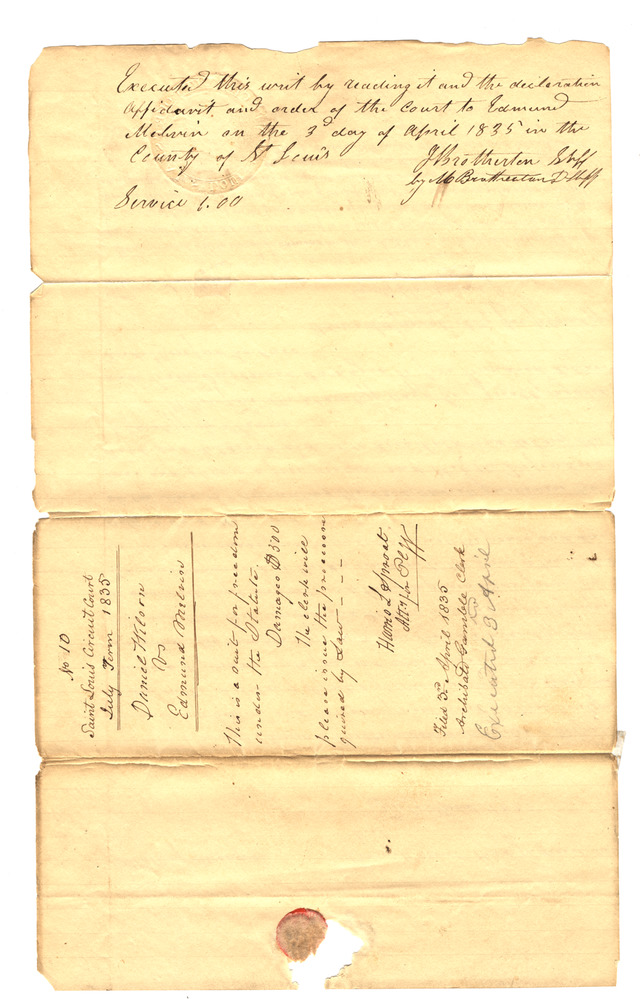 Executed this writ by reading it and the declaration
Affidavit and order of the Court to Edmund
Melvin on the 3d day of April 1835 in the
County of St Louis
J Brotherton Shff
by M Brotherton D Shff
Service 1.00
No 10
Saint Louis Circuit Court
July Term 1835
Daniel Wilson
vs
Edmund Melvin
This is a suit for freedom
under the Statute.
Damages $500
The clerk will
please issue the process re
quired by Law - - -
Harris L Sproat
Atty for Plff
Filed 3d April 1835
Archibald Gamble Clerk
Executed 3rd April